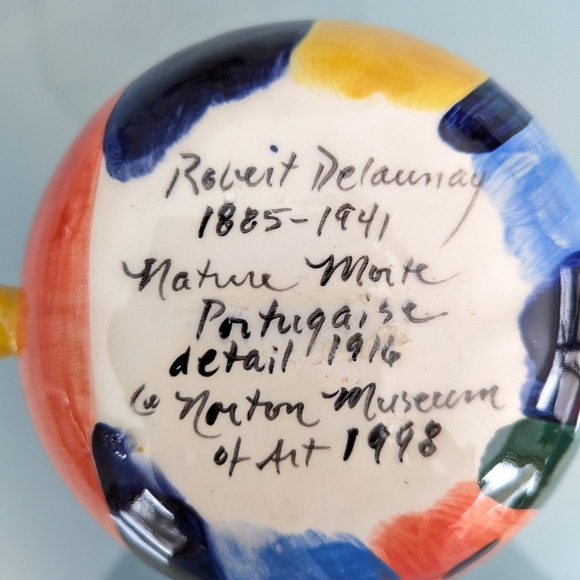 Robert Delaunay
1885-1941
Nature Morte
Portugaise
detail 1916
© Norton Museum
of Art 1998